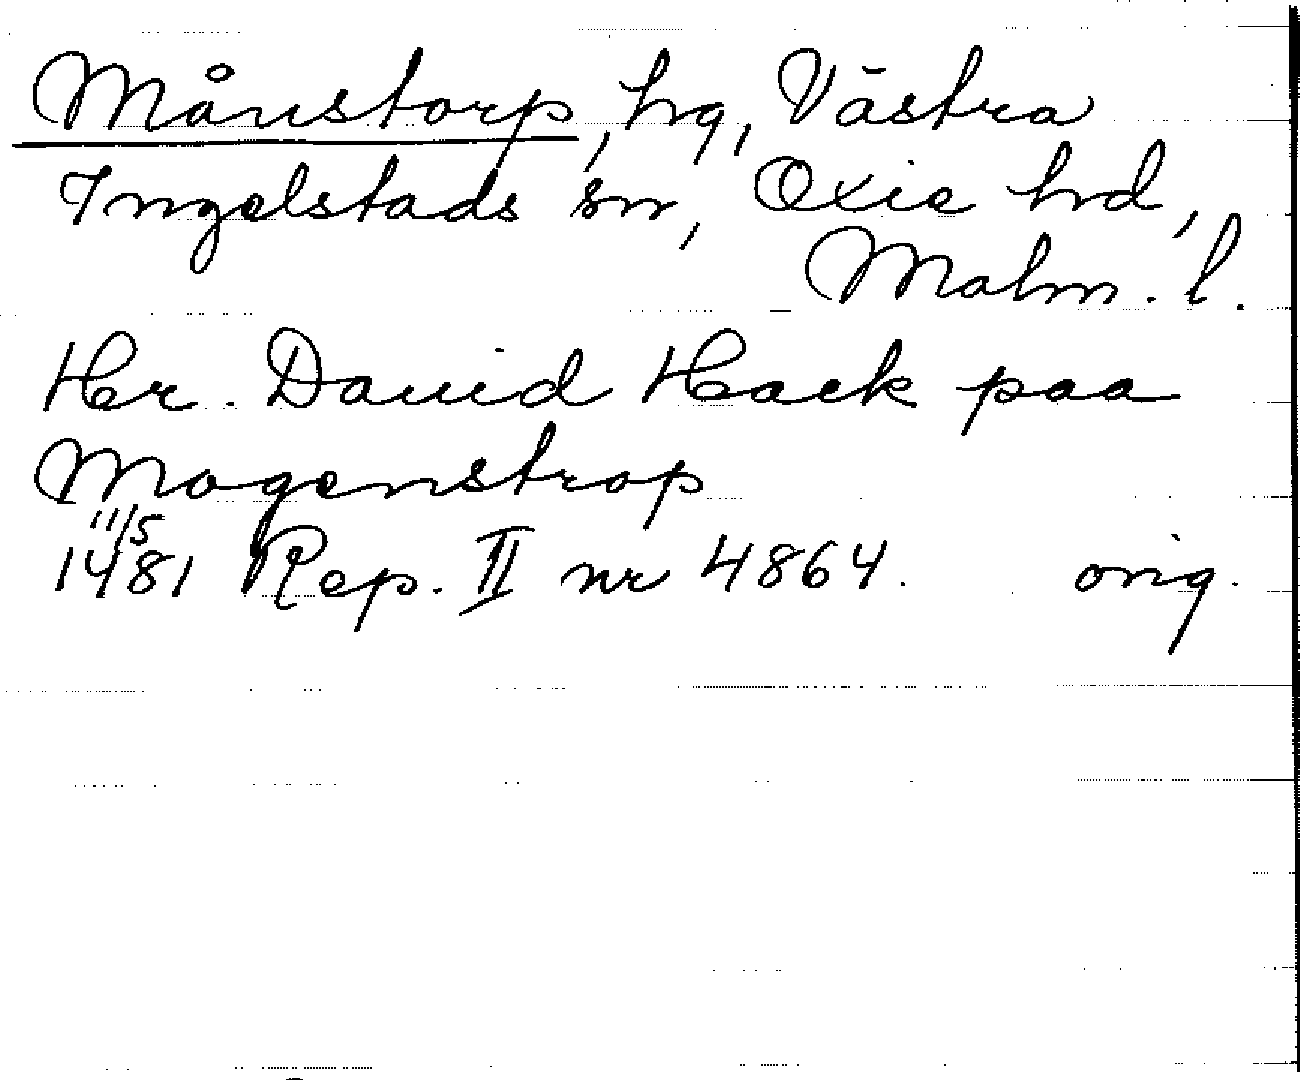 Månstorp, hg, Västra
Ingelstads sn, Oxie hd,
Malm. l.
Her. Dauid Hack paa
Mogenstrop
11/5
1481 Rep. II nr 4864. orig.